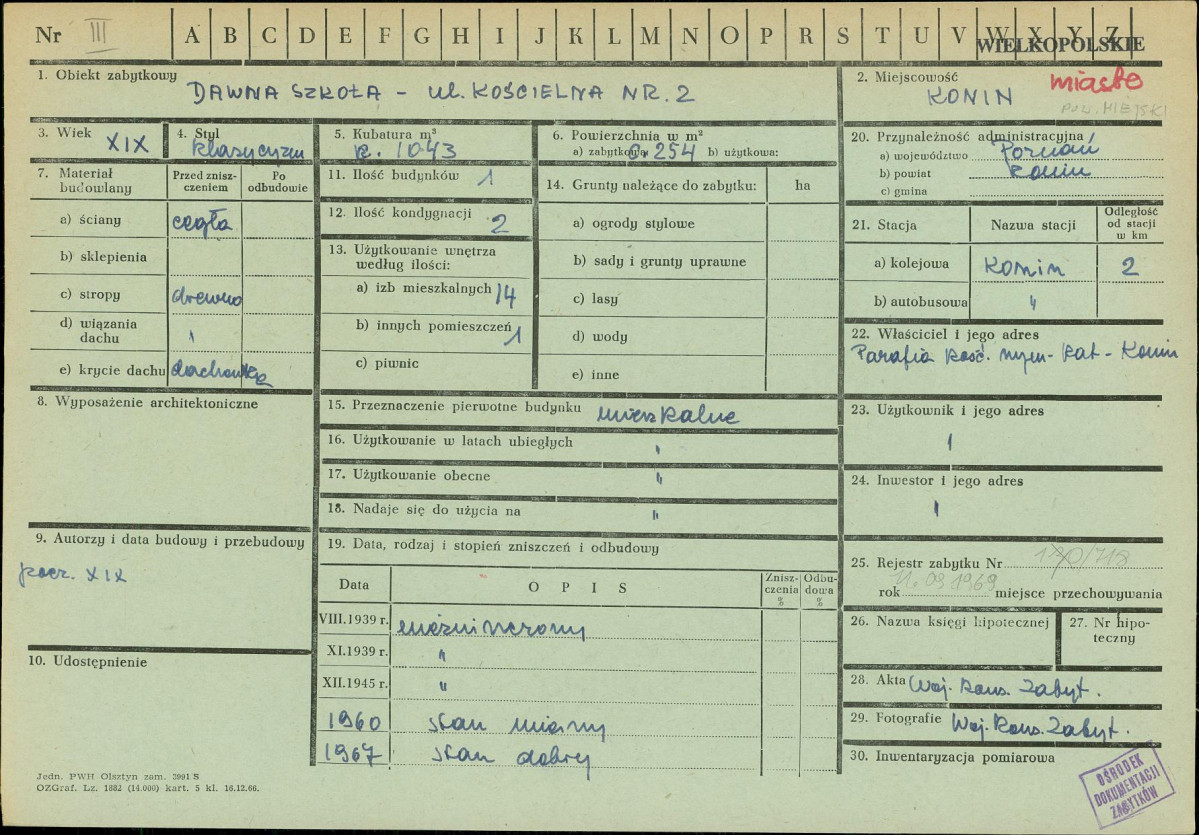 Nr III A B C D E F G H I J K L M N O P R S T U V W X Y Z
WIELKOPOLSKIE
1. Obiekt zabytkowy
DAWNA SZKOŁA - ul. KOŚCIELNA NR. 2
2. Miejscowość
KONIN
miasto
POW. MIEJSKI
3. Wiek
XIX
4. Styl
klasycyzm
5. Kubatura m³
k. 1043
6. Powierzchnia w m²
a) zabytkowa 254 b) użytkowa:
7. Materiał budowlany
Przed zniszczeniem
Po odbudowie
a) ściany cegła
b) sklepienia
c) stropy drewno
d) wiązania dachu "
e) krycie dachu dachówka
8. Wyposażenie architektoniczne
9. Autorzy i data budowy i przebudowy
pocz. XIX
10. Udostępnienie
11. Ilość budynków 1
12. Ilość kondygnacji 2
13. Użytkowanie wnętrza według ilości:
a) izb mieszkalnych 14
b) innych pomieszczeń 1
c) piwnic
14. Grunty należące do zabytku: ha
a) ogrody stylowe
b) sady i grunty uprawne
c) lasy
d) wody
e) inne
15. Przeznaczenie pierwotne budynku mieszkalne
16. Użytkowanie w latach ubiegłych "
17. Użytkowanie obecne "
18. Nadaje się do użycia na "
19. Data, rodzaj i stopień zniszczeń i odbudowy
Data OPIS Zniszczenia % Odbudowa %
VIII.1939 r. niezniszczony
XI.1939 r. "
XII.1945 r. "
1960 stan mierny
1967 stan dobry
20. Przynależność administracyjna
a) województwo Poznań
b) powiat Konin
c) gmina
21. Stacja
Nazwa stacji
Odległość od stacji w km
a) kolejowa KONIN 2
b) autobusowa "
22. Właściciel i jego adres
Parafia Kość. rzym-kat - Konin
23. Użytkownik i jego adres
"
24. Inwestor i jego adres
"
25. Rejestr zabytku Nr 170/718
rok 11.03.1969 miejsce przechowywania
26. Nazwa księgi hipotecznej
27. Nr hipoteczny
28. Akta Woj. Kons. Zabyt.
29. Fotografie Woj. Kons. Zabyt.
30. Inwentaryzacja pomiarowa
OŚRODEK
DOKUMENTACJI
ZABYTKÓW
Jedn. PWH Olsztyn zam. 3991 S
OZGraf. Lz. 1882 (14.000) kart. 5 kl. 16.12.66.